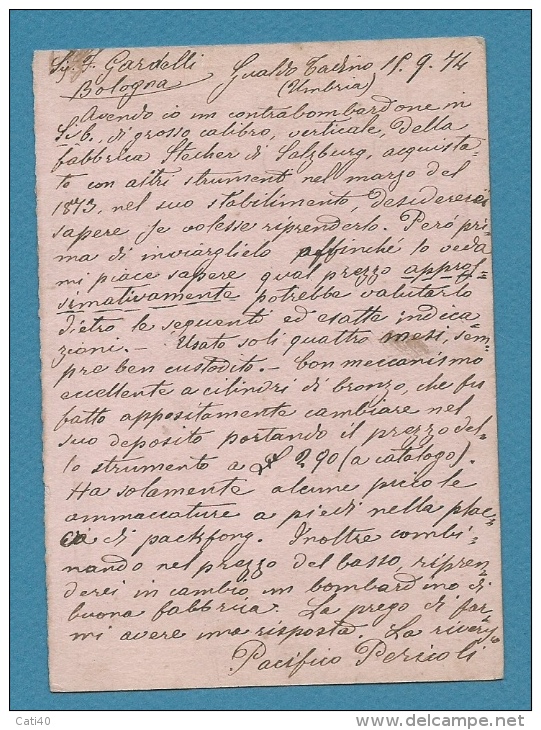 Sig. F. Gardelli Gualdo Tadino 18. 9. 74
Bologna (Umbria)
Avendo io un contrabombardone in
Sib. di grosso calibro, verticale, della
fabbrica Stecher di Salzburg, acquista-
to con altri strumenti nel marzo del
1873, nel suo stabilimento, desidererei
sapere se volesse riprenderlo. Però pri-
ma di inviarglielo affinché lo veda
mi piace sapere qual prezzo appros-
simativamente potrebbe valutarlo
dietro le seguenti ed esatte indica
zioni. - Usato soli quattro mesi, sem-
pre ben custodito. - Con meccanismo
eccellente a cilindri di bronzo, che fu
fatto appositamente cambiare nel
suo deposito portando il prezzo del-
lo strumento a £ 290 (a catalogo).
Ha solamente alcune piccole
ammaccature a piedi nella plac-
ca di packfong. Inoltre combi-
nando nel prezzo del basso, ripren-
derei in cambio, un bombardino di
buona fabbrica. La prego di far-
mi avere una risposta. La riverisco
Pacifico Pericoli
Cati40
www.delcampe.net